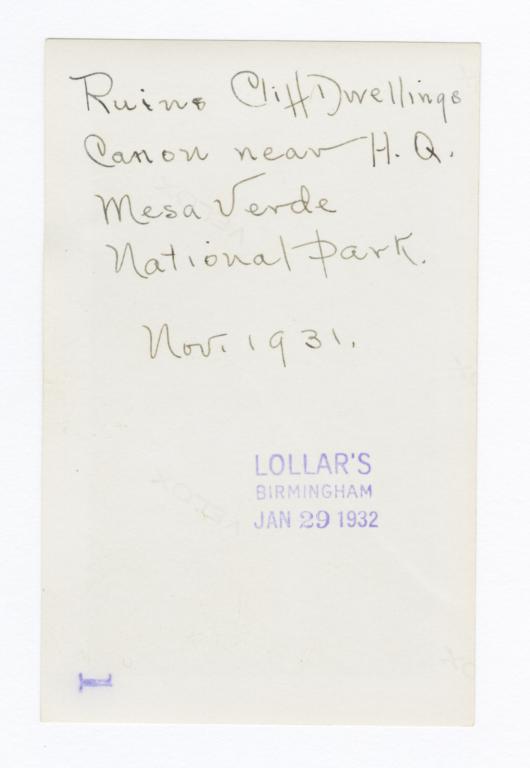 Ruins Cliff Dwellings
Canon near H. Q.
Mesa Verde
National Park.
Nov. 1931.
LOLLAR'S
BIRMINGHAM
JAN 29 1932
I
VELOX